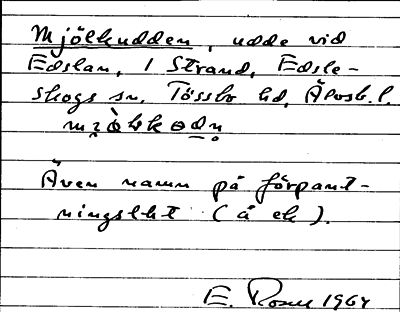 Mjölkudden, udde vid
Edslan, 1 Strand, Edsle-
skogs sn. Tössbo hd, Älvsb. l.
Även namn på förpant-
ningslht (å ek).
E. 1964